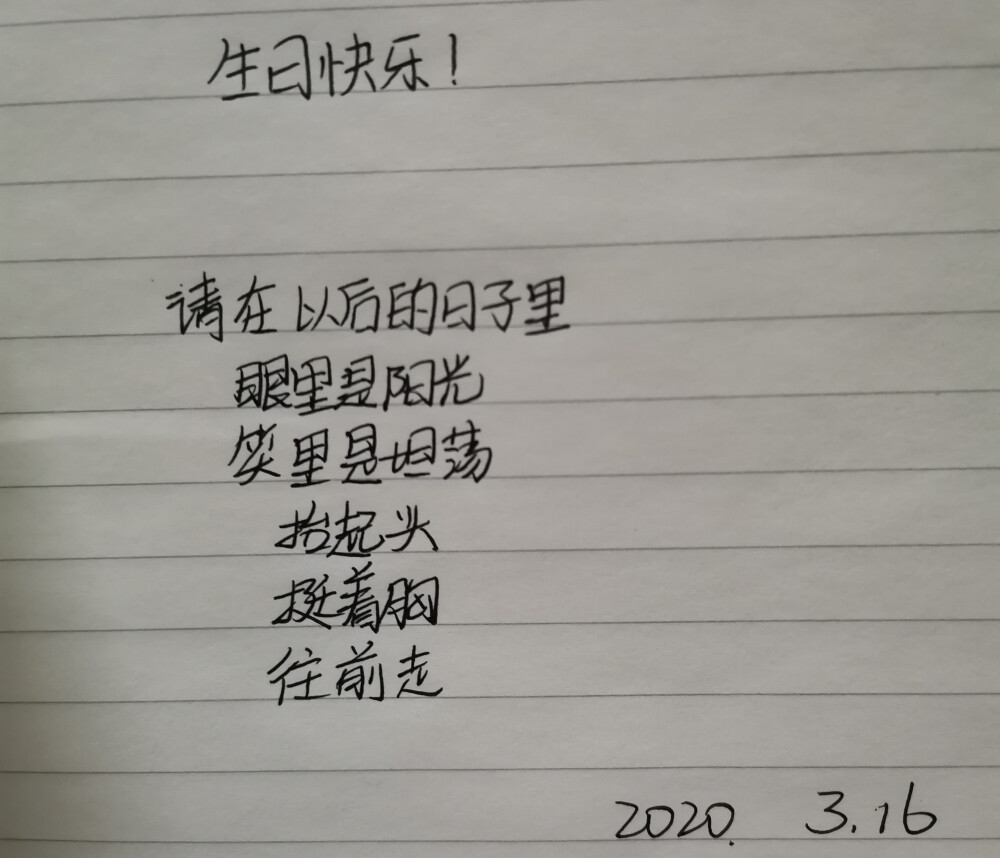 生日快乐!
请在以后的日子里
眼里是阳光
笑里是坦荡
抬起头
挺着胸
往前走
2020. 3.16